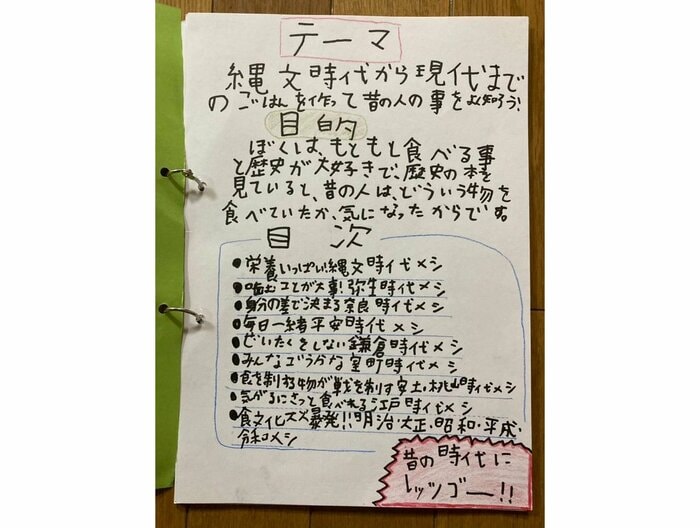 テーマ
縄文時代から現代まで
のごはんを作って昔の人の事を知ろう!
目的
ぼくは、もともと食べる事
と歴史が大好きで、歴史の本を
見ていると、昔の人は、どういう物を
食べていたか、気になったからです。
目次
●栄養いっぱい!縄文時代メシ
●噛むことが大事!弥生時代メシ
●身分の差で決まる奈良時代メシ
●毎日一緒平安時代メシ
●ぜいたくをしない鎌倉時代メシ
●みんなごうかな室町時代メシ
●食を制する物が戦を制す安土・桃山時代メシ
●気がるにさっと食べれる江戸時代メシ
●食文化大大暴発!!明治・大正・昭和・平成・
令和メシ
昔の時代に
レッツゴー!!